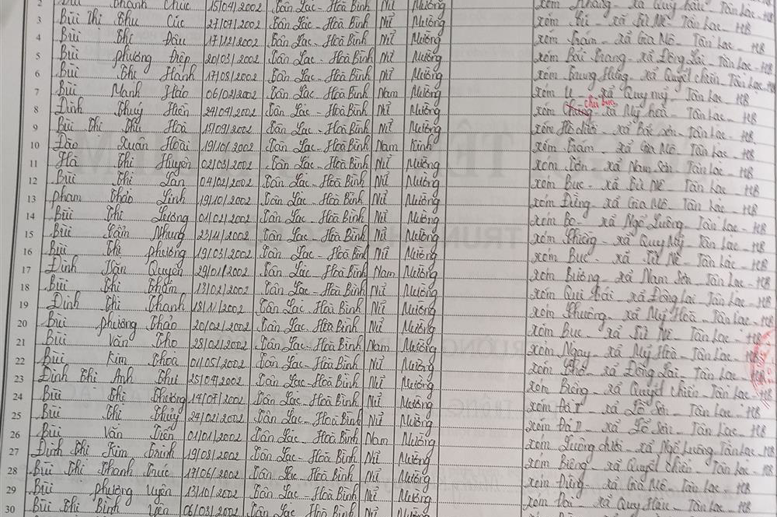 2 Bùi Thanh Chúc 15/04/2002 Tân Lạc - Hoà Bình Nữ Mường xóm Kháng - xã Quy Hậu Tân Lạc - HB
3 Bùi Thị Thu Cúc 27/07/2002 Tân Lạc - Hoà Bình Nữ Mường xã Tử Nê - Tân Lạc - HB
4 Bùi Thị Đậu 17/12/2002 Tân Lạc - Hoà Bình Nữ Mường xóm Trám - xã Gia Mô - Tân Lạc - HB
5 Bùi Phương Điệp 20/03/2002 Tân Lạc - Hoà Bình Nữ Mường xóm Bái Trang - xã Đông Lai, Tân Lạc - HB
6 Bùi Thị Hánh 17/05/2002 Tân Lạc - Hoà Bình Nữ Mường xã Quyết Chiến Tân Lạc - HB
7 Bùi Mạnh Hảo 06/02/2002 Tân Lạc - Hoà Bình Nam Mường xóm - xã Quy Mỹ, Tân Lạc - HB
8 Đinh Thuý Hiền 24/04/2002 Tân Lạc - Hoà Bình Nữ Mường xóm xã Mỹ Hoà - Tân Lạc - HB
9 Bùi Thị Thu Hoà 15/09/2002 Tân Lạc - Hoà Bình Nữ Mường xóm - xã Bắc Sơn - Tân Lạc - HB
10 Đào Xuân Hoài 19/10/2002 Tân Lạc - Hoà Bình Nam Kinh xóm Trám - xã Gia Mô - Tân Lạc - HB
11 Hà Thị Huyền 02/09/2002 Tân Lạc - Hoà Bình Nữ Mường xóm - xã Nam Sơn - Tân Lạc - HB
12 Bùi Thị Lan 04/02/2002 Tân Lạc - Hoà Bình Nữ Mường xóm Bục - xã Tử Nê - Tân Lạc - HB
13 Phạm Thảo Linh 19/10/2002 Tân Lạc - Hoà Bình Nữ Mường xóm Đừng - xã Gia Mô - Tân Lạc - HB
14 Bùi Thị Lương 01/02/2002 Tân Lạc - Hoà Bình Nữ Mường xóm Bo - xã Ngổ Luông - Tân Lạc - HB
15 Bùi Cẩm Nhung 23/11/2002 Tân Lạc - Hoà Bình Nữ Mường xóm - xã Quy Mỹ - Tân Lạc - HB
16 Bùi Thị Phương 19/03/2002 Tân Lạc - Hoà Bình Nữ Mường xóm Bục - xã Tử Nê - Tân Lạc - HB
17 Đinh Văn Quyền 29/01/2002 Tân Lạc - Hoà Bình Nam Mường xóm Bương - xã Nam Sơn - Tân Lạc - HB
18 Bùi Thị Thắm 13/02/2002 Tân Lạc - Hoà Bình Nữ Mường xóm Quê Bái - xã Đông Lai - Tân Lạc - HB
19 Đinh Thị Thanh 2002 Tân Lạc - Hoà Bình Nữ Mường xã Mỹ Hoà - Tân Lạc - HB
20 Bùi Phương Thảo 20/02/2002 Tân Lạc - Hoà Bình Nữ Mường xóm Bục - xã Tử Nê - Tân Lạc - HB
21 Bùi Văn Thọ 25/02/2002 Tân Lạc - Hoà Bình Nam Mường xóm Ngay - xã Mỹ Hoà - Tân Lạc - HB
22 Bùi Kim Thoa 01/05/2002 Tân Lạc - Hoà Bình Nữ Mường xóm - xã Đông Lai - Tân Lạc - HB
23 Đinh Thị Anh Thư 25/09/2002 Tân Lạc - Hoà Bình Nữ Mường xóm Biêng - xã Quyết Chiến - Tân Lạc - HB
24 Bùi Thị Thương 14/07/2002 Tân Lạc - Hoà Bình Nữ Mường xóm Đá II - xã Lỗ Sơn - Tân Lạc - HB
25 Bùi Thị Thuỷ 24/02/2002 Tân Lạc - Hoà Bình Nữ Mường xóm Đá II - xã Lỗ Sơn - Tân Lạc - HB
26 Bùi Văn Tiến 01/01/2002 Tân Lạc - Hoà Bình Nam Mường xóm - xã Ngổ Luông Tân Lạc - HB
27 Đinh Thị Kim Trinh 19/08/2002 Tân Lạc - Hoà Bình Nữ Mường xóm Biêng - xã Quyết Chiến - Tân Lạc - HB
28 Bùi Thị Thanh Trúc 17/06/2002 Tân Lạc - Hoà Bình Nữ Mường xóm Đừng - xã Gia Mô - Tân Lạc - HB
29 Bùi Phương Uyên 13/10/2002 Tân Lạc - Hoà Bình Nữ Mường
30 Bùi Thị Bình Yên 06/03/2002 Tân Lạc - Hoà Bình Nữ Mường xóm - xã Quy Hậu - Tân Lạc - HB